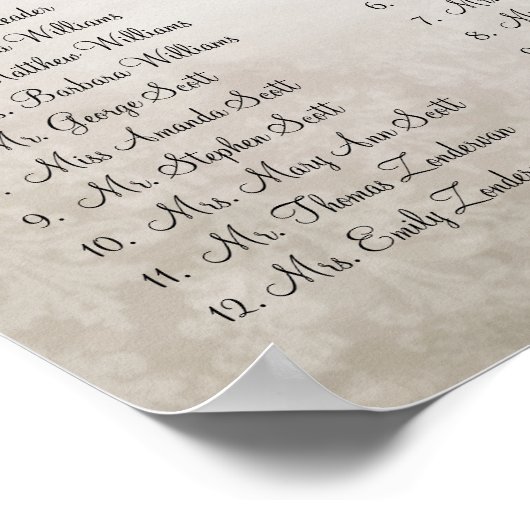 Williams
Matthew Williams
Barbara Williams
Mr. George Scott
Miss Amanda Scott
9. Mr. Stephen Scott
10. Mrs. Mary Ann Scott
11. Mr. Thomas Zondervan
12. Mrs. Emily
6.
7.
8.